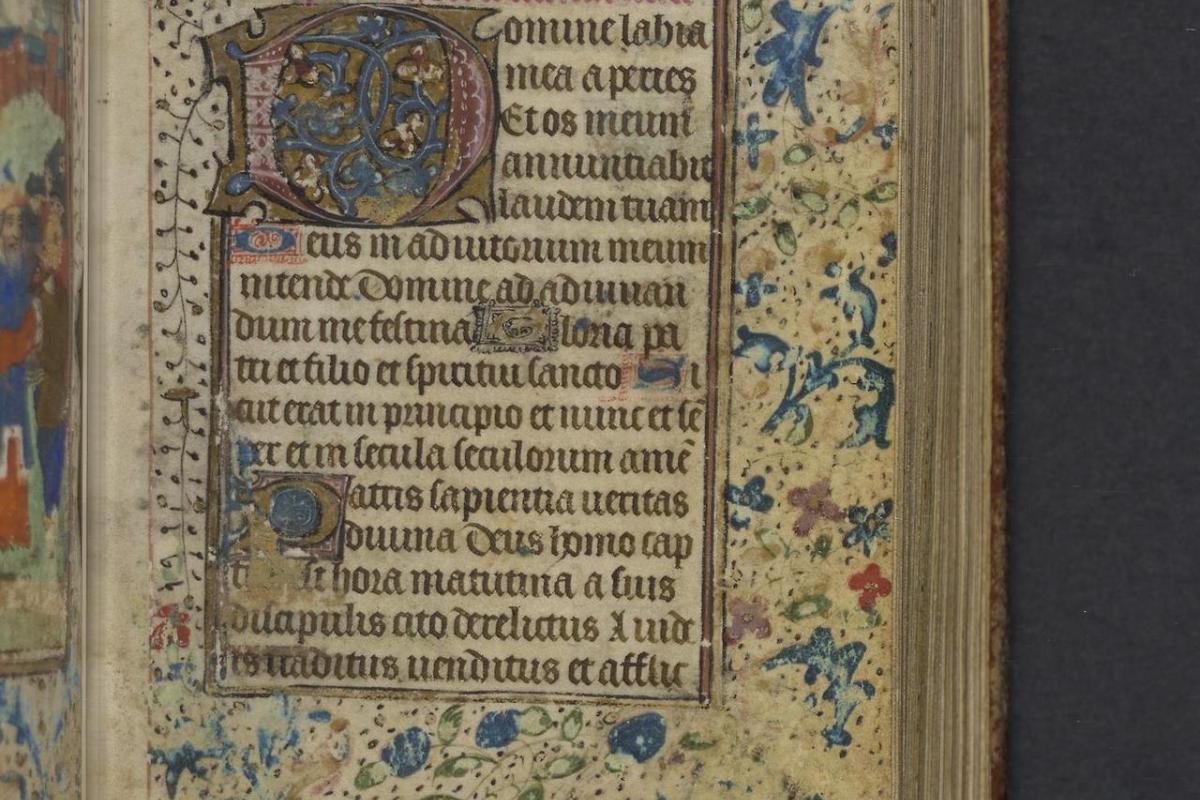 Domine labia
mea aperies
Et os meum
annuntiabit
laudem tuam
Deus in adiutorium meum
intende Domine ad adiuuan
dum me festina Gloria pa
tri et filio et spiritui sancto Si
cut erat in principio et nunc et sē
per et in secula seculorum amē
Patris sapientia ueritas
diuina Deus homo cap
hora matutina a suis
discipulis cito derelictus A iude
is traditus uenditus et afflic